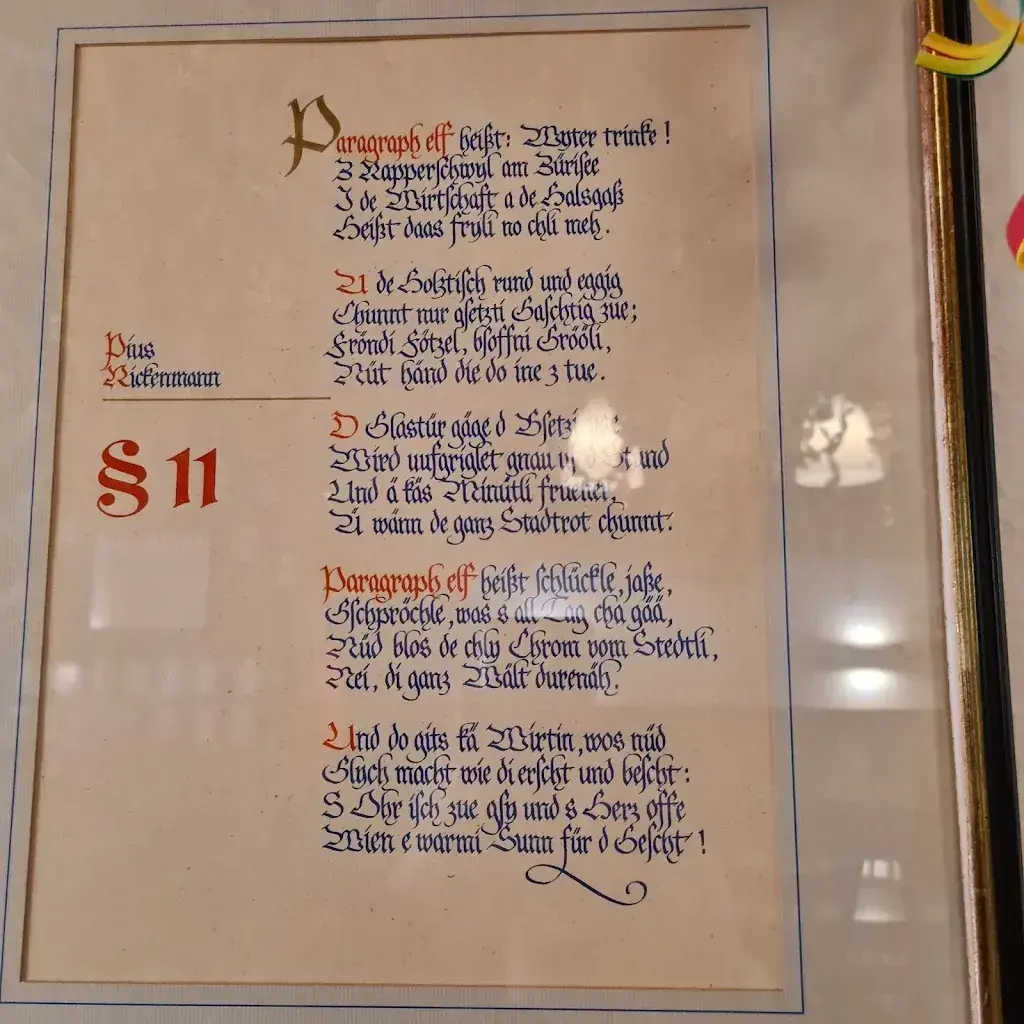 Paragraph elf heißt: Wyter trinke!
Z Rapperschwyl am Zürisee
I de Wirtschaft a de Halsgaß
Heißt daas fryli no chli meh.
A de Holztisch rund und eggig
Chunnt nur gsetzti Gaschtig zue;
Fröndi Fötzel, bsoffni Grööli,
Nüt händ die do ine z tue.
Pius
Rickenmann
§ 11
D Glastür gäge d
Wird uufgriglet gnau
Und ä käs Minütli fruener,
Ä wänn de ganz Stadtrot chunnt.
Paragraph elf heißt schlückle, jaße,
Gschpröchle, was s all Tag cha gää,
Nüd blos de chly Chrom vom Stedtli,
Nei, di ganz Wält durenäh.
Und do gits kä Wirtin, wos nüd
Glych macht wie di erscht und bescht:
S Ohr isch zue gsy und s Herz offe
Wien e warmi Sunn für d Gescht!